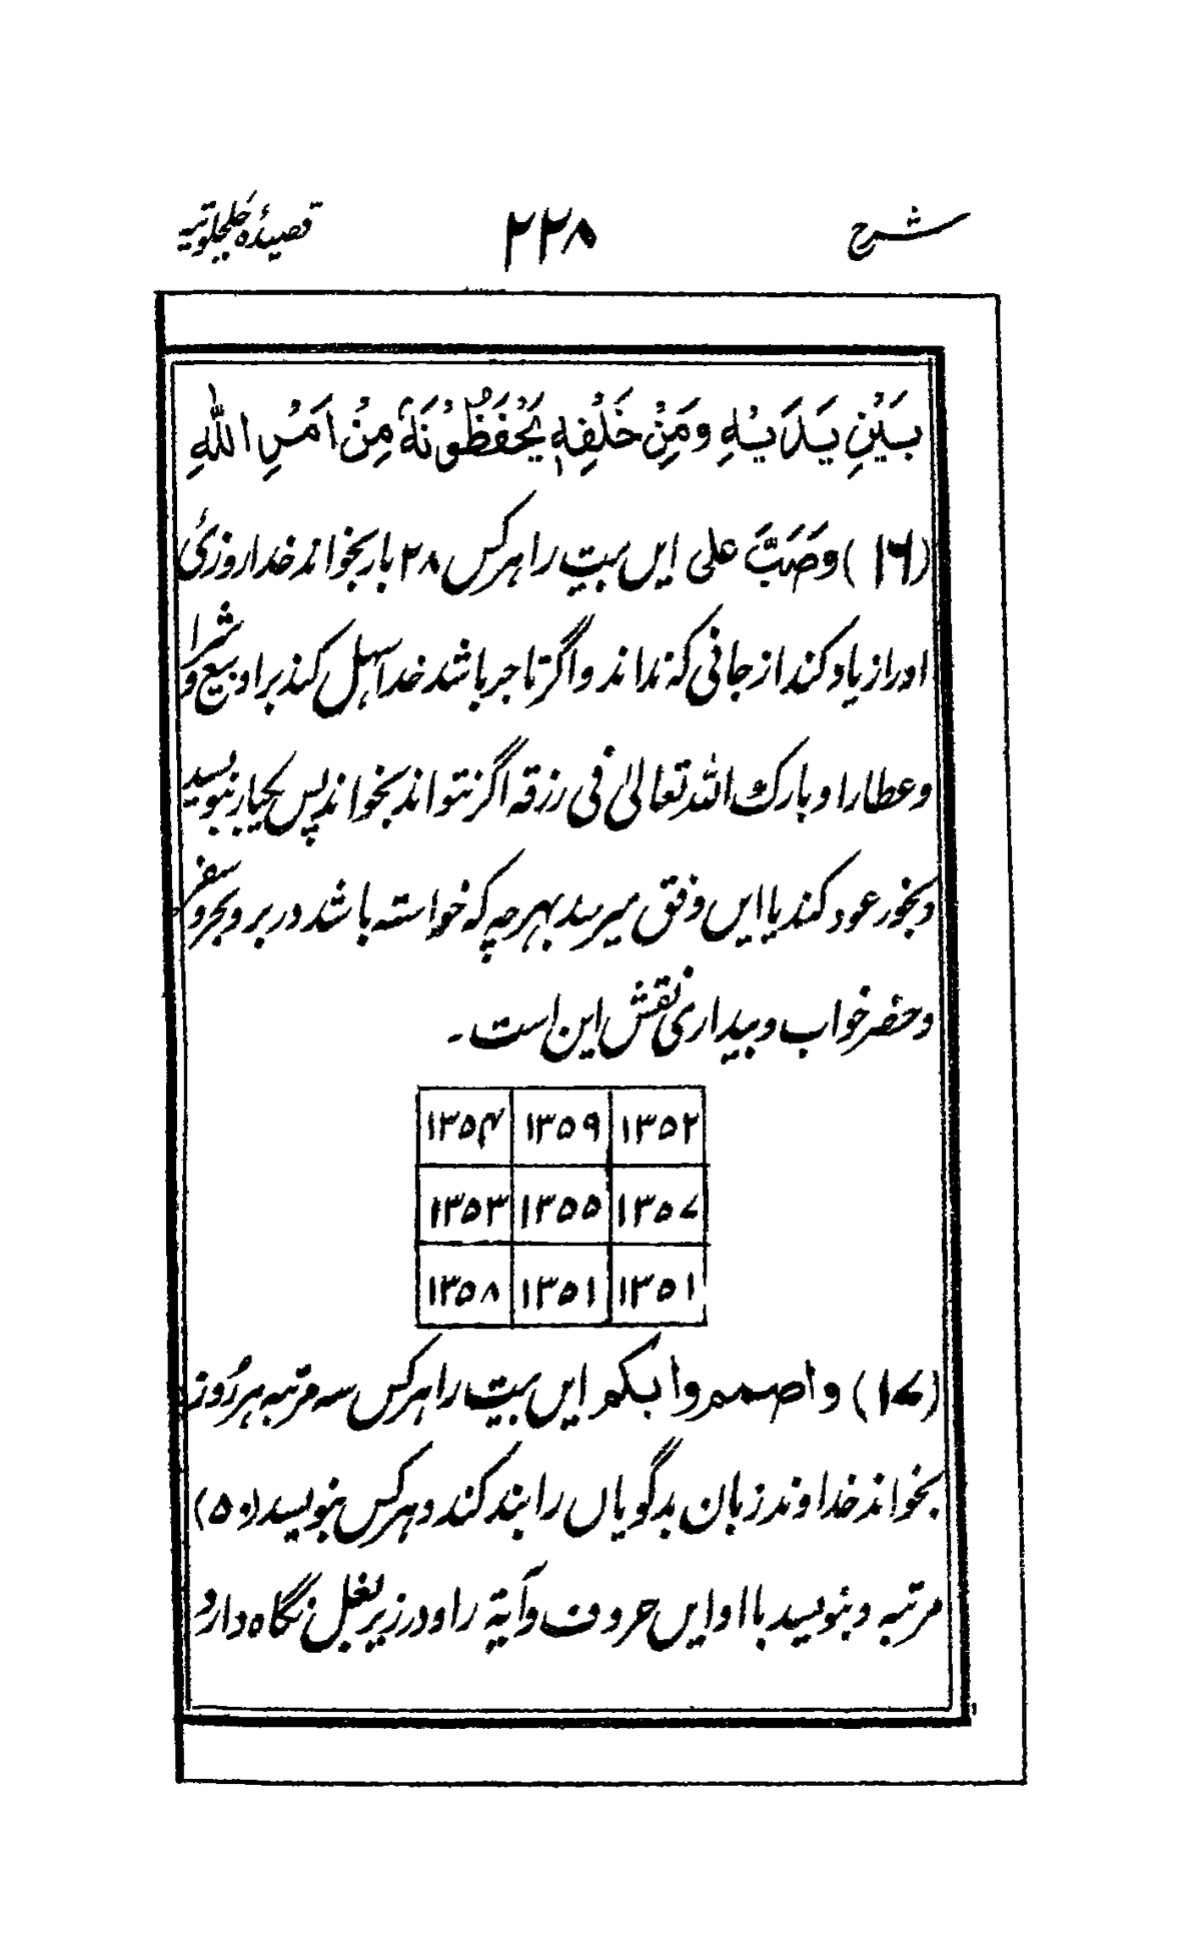 شرح ۲۲۸ قصیدۂ جلجلوتیہ
بَیْنِ یَدَیْہِ وَمِنْ خَلْفِہٖ یَحْفَظُوْنَہٗ مِنْ اَمْرِ اللّٰہِ
(۱۶) وصَبَّ علی ایں بیت را ہر کس ۲۸ بار بخواند خدا روزیٔ
اورا زیاد کند از جائی کہ نداند و اگر تاجر باشد خدا سہل کند براو بیع و شرا
و عطارا و بارک اللہ تعالیٰ فی رزقہ اگر نتواند بخواند پس یکبار بنویسد
و بخور عود کند یا ایں وفق میرسد بہرچہ کہ خواستہ باشد در بر و بحر و سفر
و حضر خواب و بیداری نقش این است۔
۱۳۵۲ ۱۳۵۹ ۱۳۵۴
۱۳۵۷ ۱۳۵۵ ۱۳۵۳
۱۳۵۱ ۱۳۵۱ ۱۳۵۸
(۱۷) واصمم وابکم ایں بیت را ہر کس سہ مرتبہ ہر روز
بخواند خداوند زبان بدگویاں را بند کند و ہر کس بنویسد (۵۰)
مرتبہ و بنویسد با او ایں حروف وآیۃ را و در زیر بغل نگاہ دارد